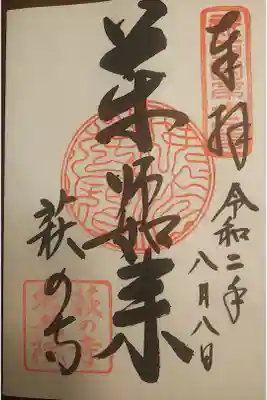 奉拝
令和二年八月八日
薬師如来
萩の寺
萩の寺